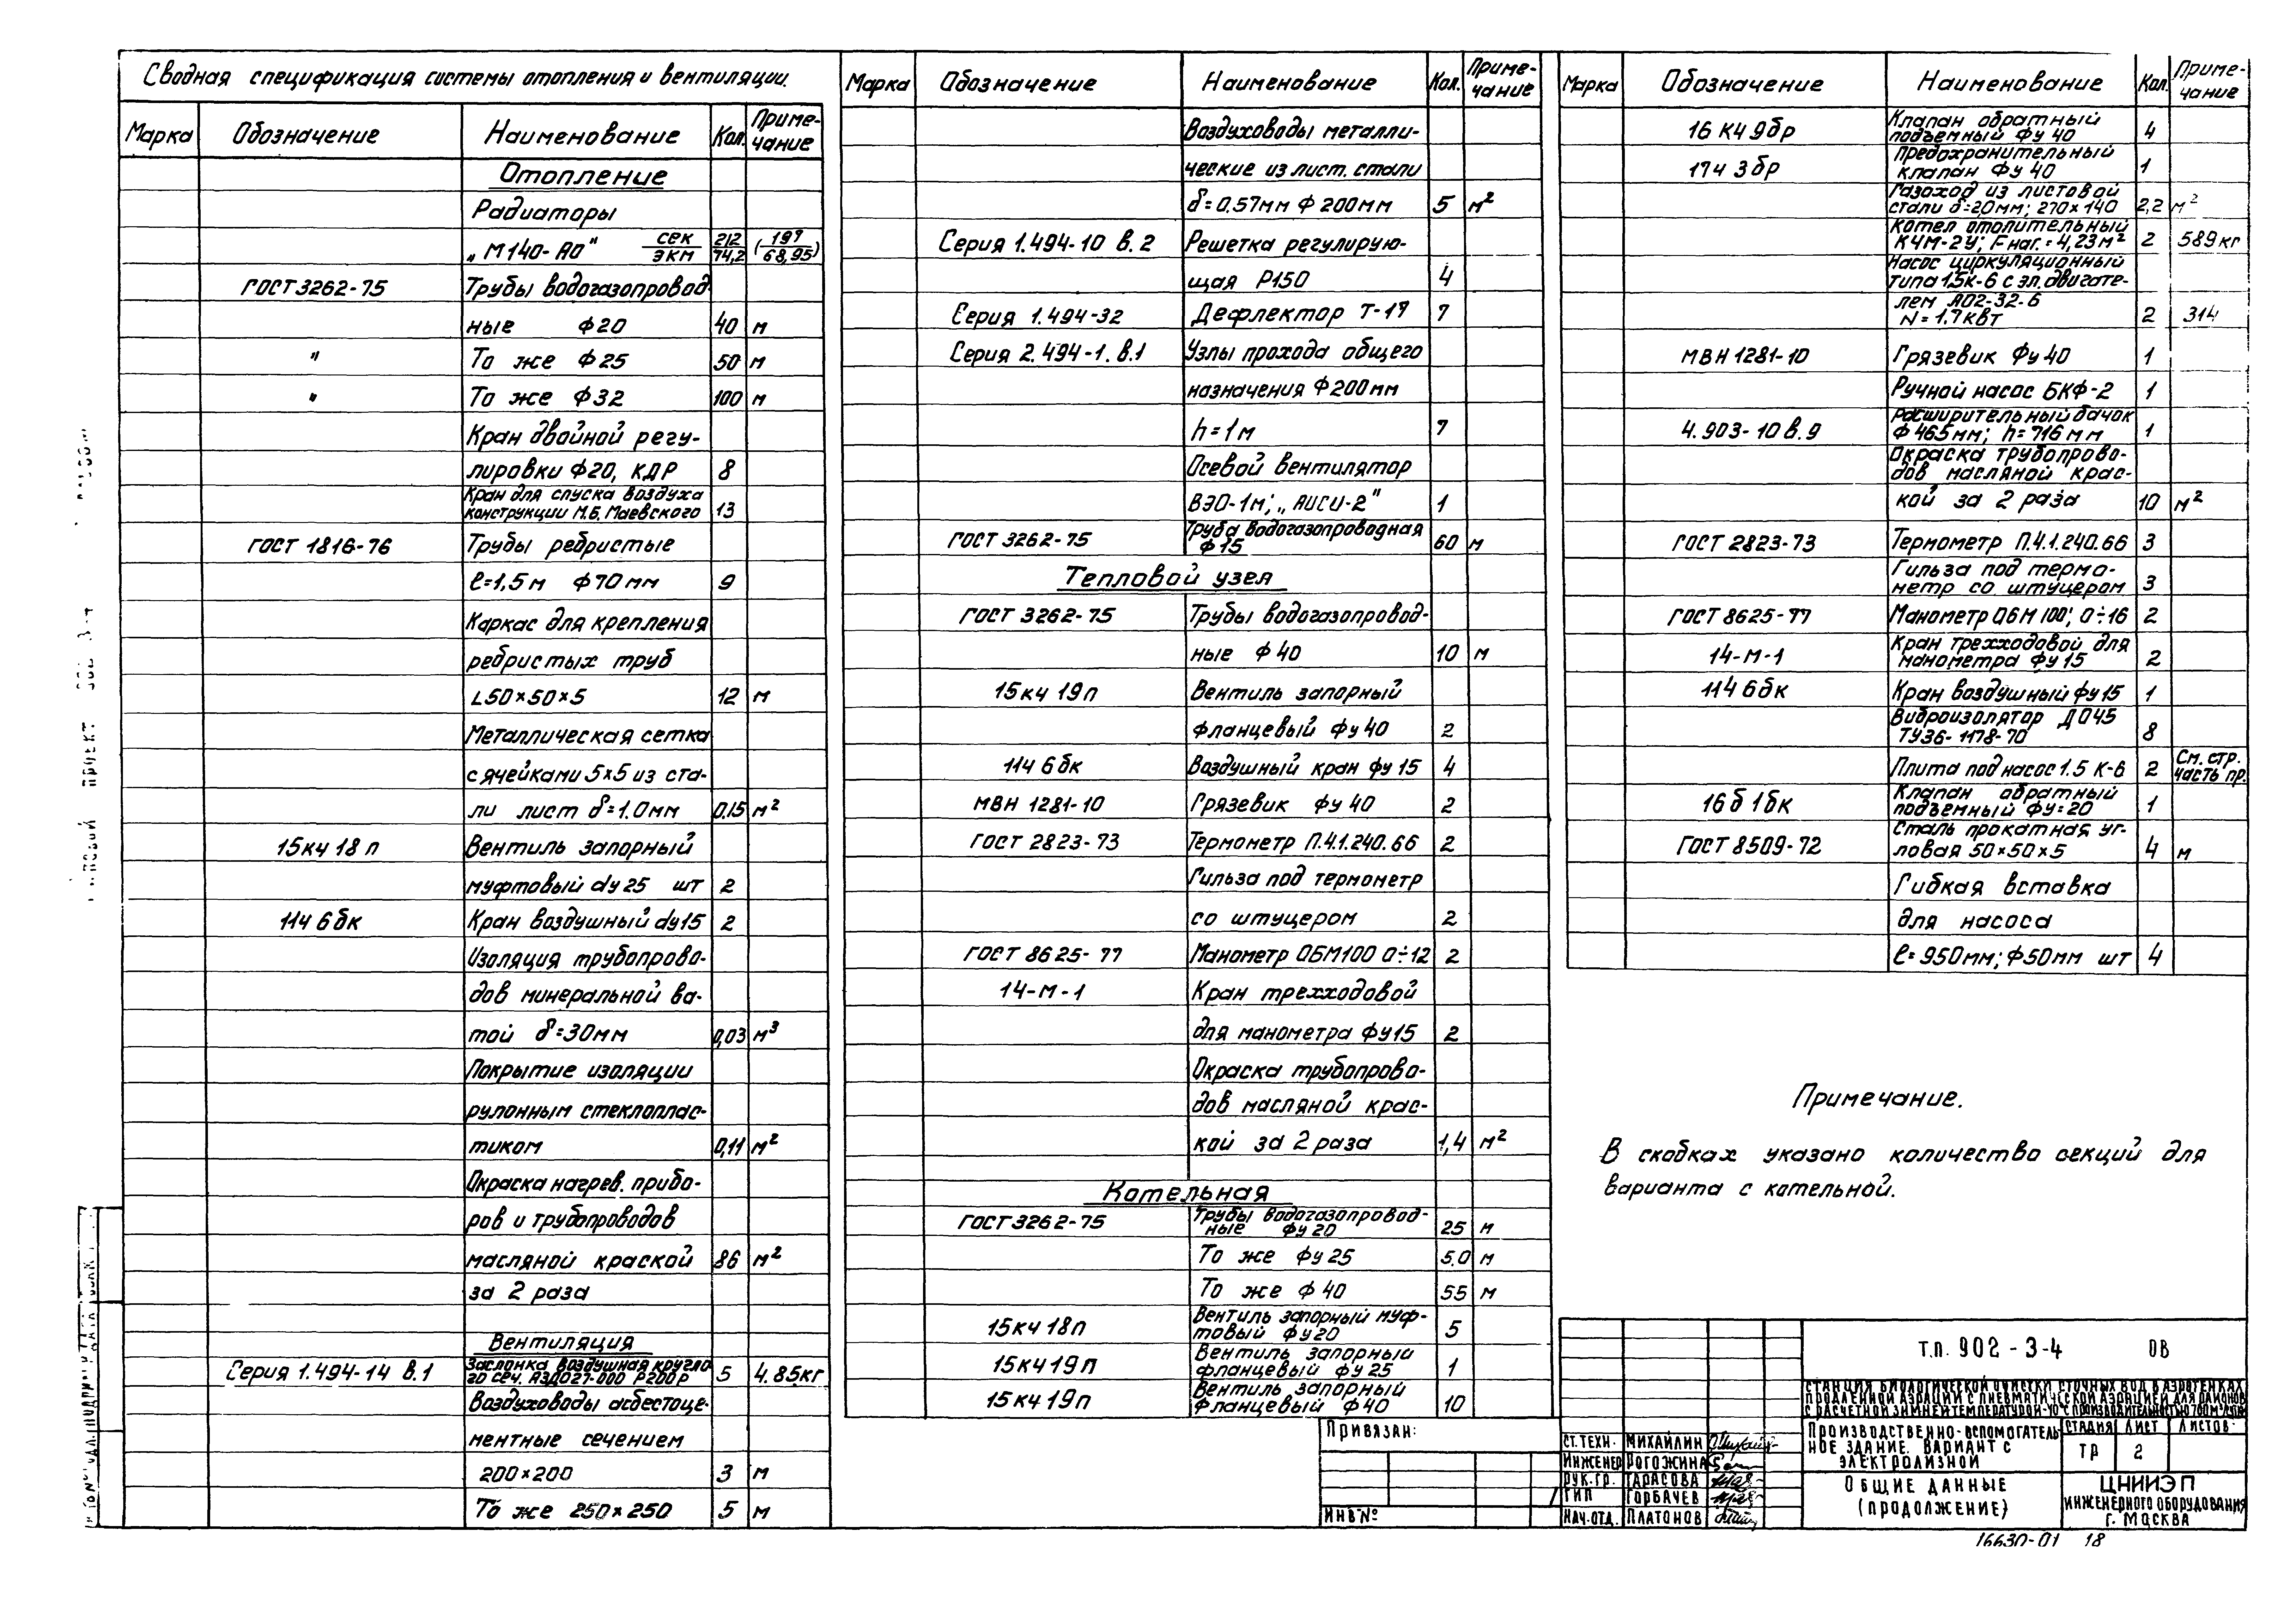 Сводная спецификация системы отопления и вентиляции.
Марка Обозначение Наименование Кол. Приме-
чание
Отопление
Радиаторы
„М140-АО" сек/экм 212/74,2 (197/68,95)
ГОСТ 3262-75 Трубы водогазопровод-
ные ф20 40 м
" То же ф25 50 м
" То же ф32 100 м
Кран двойной регу-
лировки ф20, КДР 8
Кран для спуска воздуха
конструкции М.Б. Маевского 13
ГОСТ 1816-76 Трубы ребристые
ℓ=1,5м ф70мм 9
Каркас для крепления
ребристых труб
L50×50×5 12 м
Металлическая сетка
с ячейками 5×5 из ста-
ли лист δ=1.0мм 0,15 м²
15кч 18п Вентиль запорный
муфтовый dу 25 шт 2
11ч 6бк Кран воздушный dу15 2
Изоляция трубопрово-
дов минеральной ва-
той δ=30мм 0,03 м³
Покрытие изоляции
рулонным стеклоплас-
тиком 0,11 м²
Окраска нагрев. прибо-
ров и трубопроводов
масляной краской 86 м²
за 2 раза
Вентиляция
Серия 1.494-14 в.1 Заслонка воздушная кругло
го сеч. АЗД027-000 Р200Р 5 4.85кг
Воздуховоды асбестоце-
ментные сечением
200×200 3 м
То же 250×250 5 м
Марка Обозначение Наименование Кол. Приме-
чание
Воздуховоды металли-
ческие из лист. стали
δ=0.57мм ф 200мм 5 м²
Серия 1.494-10 в.2 Решетка регулирую-
щая Р150 4
Серия 1.494-32 Дефлектор Т-17 7
Серия 2.494-1. в.1 Узлы прохода общего
назначения ф200мм
h=1м 7
Осевой вентилятор
ВЭО-1м; „АИСИ-2" 1
ГОСТ 3262-75 Труба водогазопроводная
ф15 60 м
Тепловой узел
ГОСТ 3262-75 Трубы водогазопровод-
ные ф 40 10 м
15кч 19п Вентиль запорный
фланцевый фу 40 2
11ч 6бк Воздушный кран фу 15 4
МВН 1281-10 Грязевик фу 40 2
ГОСТ 2823-73 Термометр П.4.1.240.66 2
Гильза под термометр
со штуцером 2
ГОСТ 8625-77 Манометр ОБМ100 0÷12 2
14-М-1 Кран трехходовой
для манометра фу15 2
Окраска трубопрово-
дов масляной крас-
кой за 2 раза 1,4 м²
Котельная
ГОСТ 3262-75 Трубы водогазопровод-
ные фу 20 25 м
То же фу 25 5.0 м
То же ф 40 55 м
15кч 18п Вентиль запорный муф-
товый фу20 5
15кч 19п Вентиль запорный
фланцевый фу 25 1
15кч 19п Вентиль запорный
фланцевый ф40 10
Марка Обозначение Наименование Кол. Приме-
чание
16 кч 9бр Клапан обратный
подъемный фу 40 4
17ч 3бр Предохранительный
клапан фу 40 1
Газоход из листовой
стали δ=2,0мм; 270×140 2,2 м²
Котел отопительный
КЧМ-2У; Fнаг.=4,23м² 2 589кг
Насос циркуляционный
типа 1,5К-6 с эл. двигате-
лем АО2-32-6
N=1.7квт 2 314
МВН 1281-10 Грязевик фу 40 1
Ручной насос БКФ-2 1
4.903-10 в.9 Расширительный бачок
ф465мм; h=716мм 1
Окраска трубопрово-
дов масляной крас-
кой за 2 раза 10 м²
ГОСТ 2823-73 Термометр П.4.1.240.66 3
Гильза под термо-
метр со штуцером 3
ГОСТ 8625-77 Манометр ОБМ 100; 0÷16 2
14-М-1 Кран трехходовой для
манометра фу 15 2
11ч 6бк Кран воздушный фу15 1
Виброизолятор ДО45
ТУ36-1178-70 8
Плита под насос 1.5 К-6 2 См. стр.
часть пр.
16б 1бк Клапан обратный
подъемный фу=20 1
ГОСТ 8509-72 Сталь прокатная уг-
ловая 50×50×5 4 м
Гибкая вставка
для насоса
ℓ=950мм; ф50мм шт 4
Примечание.
В скобках указано количество секций для
варианта с котельной.
Т.П. 902-3-4 ОВ
СТАНЦИЯ БИОЛОГИЧЕСКОЙ ОЧИСТКИ СТОЧНЫХ ВОД В АЭРОТЕНКАХ
ПРОДЛЕННОЙ АЭРАЦИИ С ПНЕВМАТИЧЕСКОЙ АЭРАЦИЕЙ ДЛЯ РАЙОНОВ
С РАСЧЕТНОЙ ЗИМНЕЙ ТЕМПЕРАТУРОЙ -10° С ПРОИЗВОДИТЕЛЬНОСТЬЮ 700
ПРОИЗВОДСТВЕННО-ВСПОМОГАТЕЛЬ-
НОЕ ЗДАНИЕ. ВАРИАНТ С
ЭЛЕКТРОЛИЗНОЙ
СТАДИЯ ЛИСТ ЛИСТОВ
ТР 2
ОБЩИЕ ДАННЫЕ
(ПРОДОЛЖЕНИЕ)
ЦНИИЭП
ИНЖЕНЕРНОГО ОБОРУДОВАНИЯ
Г. МОСКВА
ПРИВЯЗАН:
ИНВ №
СТ.ТЕХН. МИХАЙЛИН
ИНЖЕНЕР РОГОЖИНА
РУК.ГР. ТАРАСОВА
ГИП ГОРБАЧЕВ
НАЧ.ОТД. ПЛАТОНОВ
16630-01 18